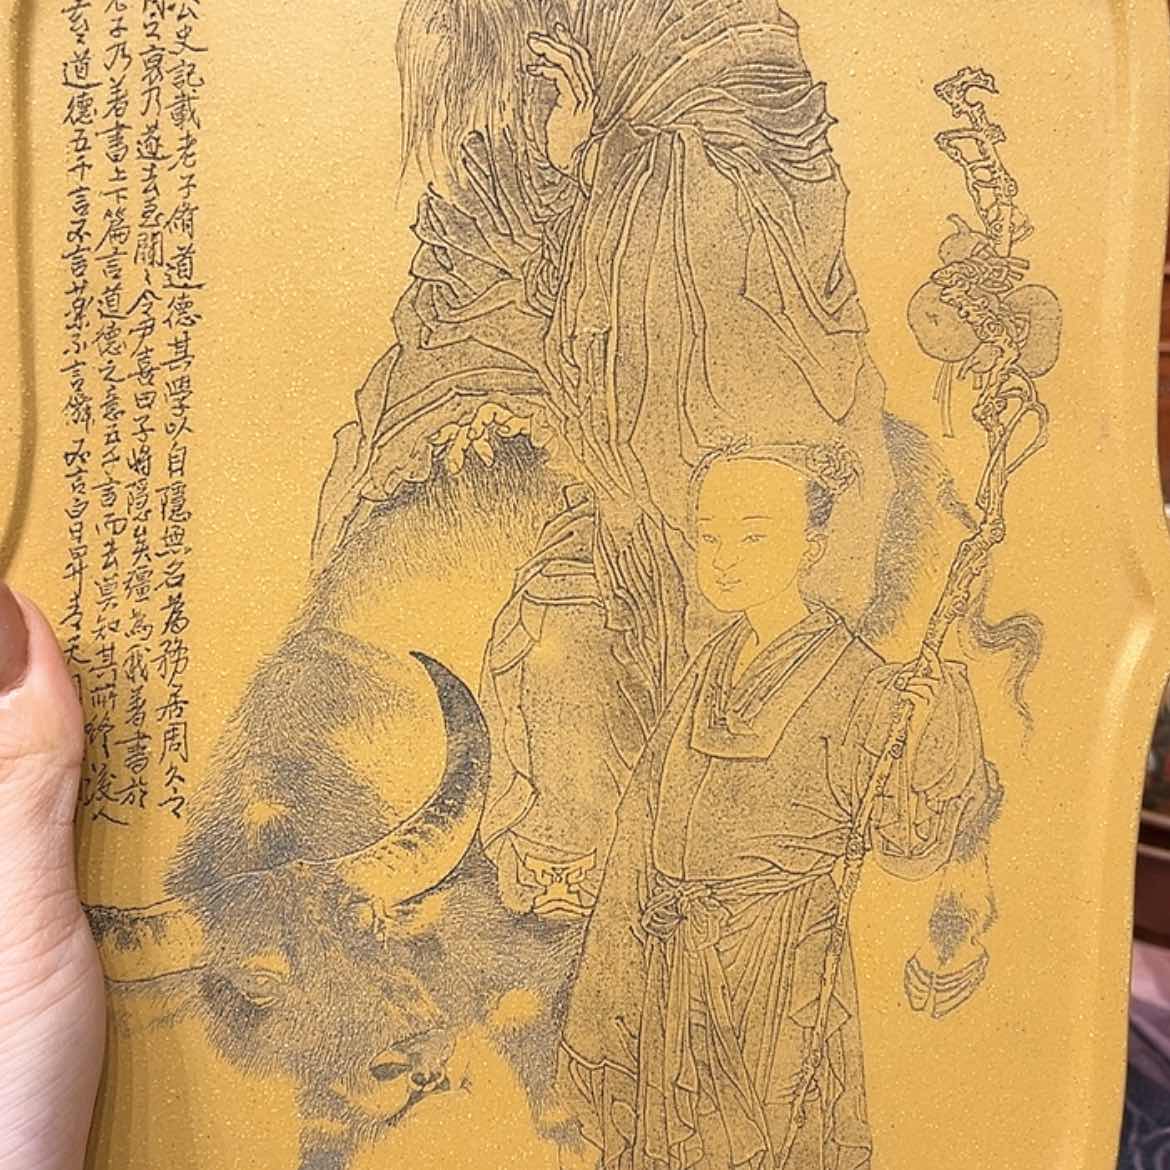 公史記載老子脩道德其學以自隱無名為務居周久之
之衰乃遂去至關〻令尹喜曰子將隱矣彊為我著書於
老子乃著書上下篇言道德之意五千言而去莫知其所終後人
道德五千言不言藥不言僊不言白日昇青天